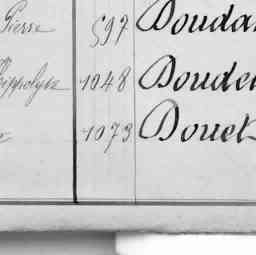 Pierre 597 Douda
Hippolyte 1048 Doude
1073 Douet